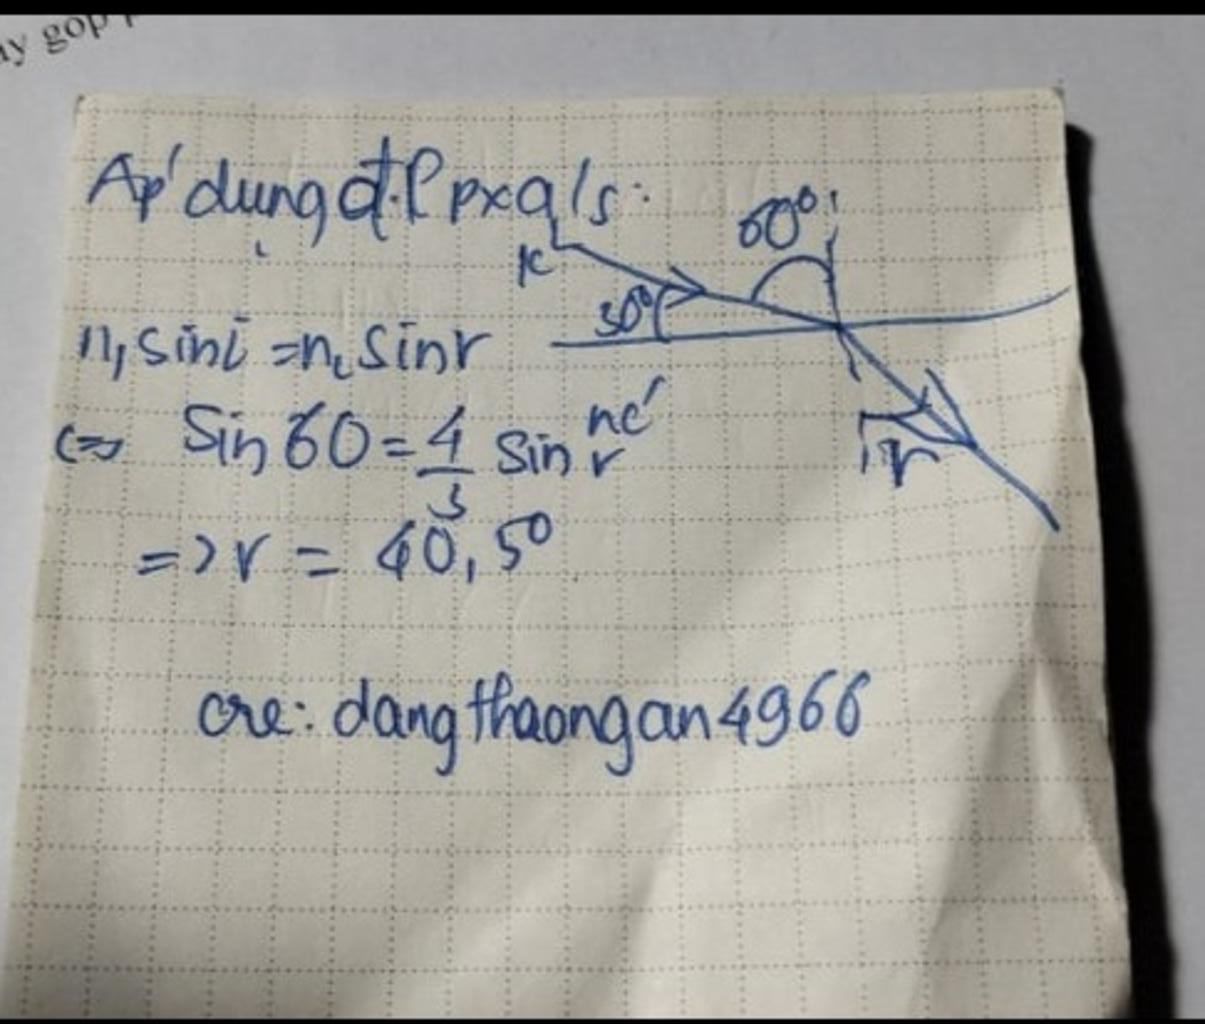 ay gop
Áp dụng đ.l pxạ a/s:
60°
kk
30°
n₁ sini = n₂ sinr
<=> Sin 60 = 4/3 sin r
nc'
r
=> r = 40,5°
cre: dangthaongan4966